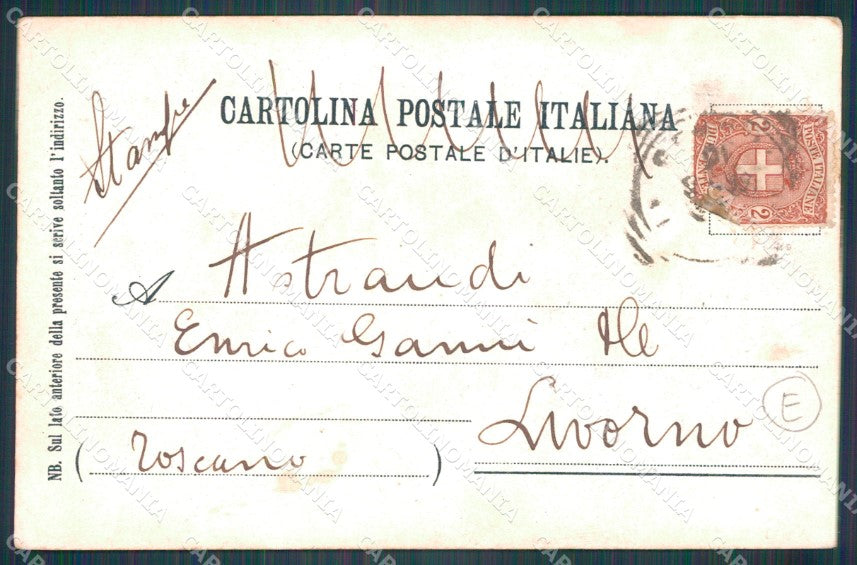 Stampe
CARTOLINA POSTALE ITALIANA
(CARTE POSTALE D'ITALIE).
2 2
POSTE ITALIANE
A Astrandi
Enrico
Livorno
(Toscano)
E
NB. Sul lato anteriore della presente si scrive soltanto l'indirizzo.
CARTOLINOMANIA